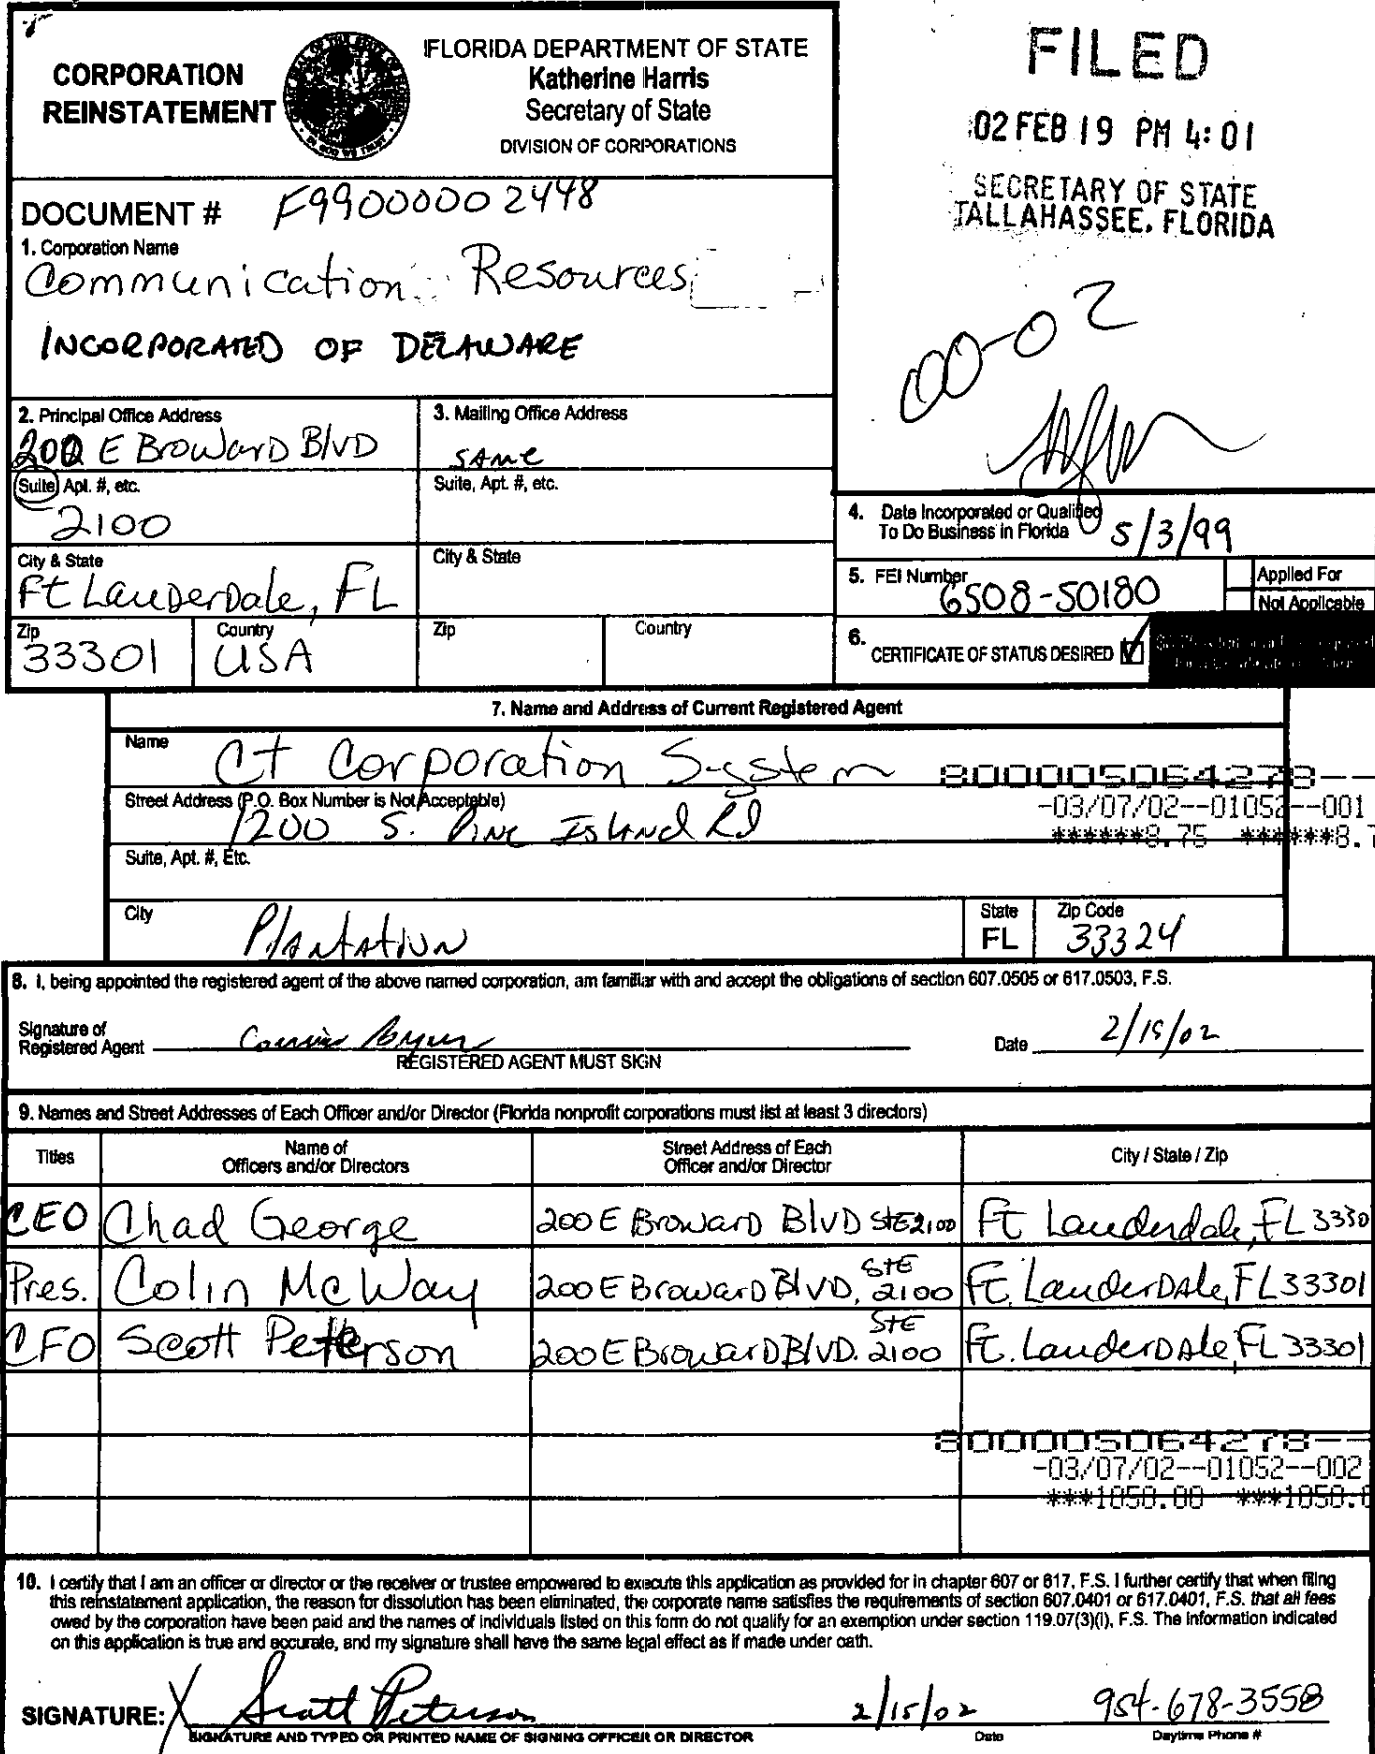 CORPORATION
REINSTATEMENT
FLORIDA DEPARTMENT OF STATE
Katherine Harris
Secretary of State
DIVISION OF CORPORATIONS
FILED
02 FEB 19 PM 4:01
SECRETARY OF STATE
TALLAHASSEE, FLORIDA
DOCUMENT # F99000002448
1. Corporation Name
Communication Resources
INCORPORATED OF DELAWARE
00-02
2. Principal Office Address
200 E Broward Blvd
3. Mailing Office Address
same
Suite, Apt. #, etc.
2100
Suite, Apt. #, etc.
City & State
Ft Lauderdale, FL
City & State
Zip
33301
Country
USA
Zip
Country
4. Date Incorporated or Qualified
To Do Business in Florida 5/3/99
5. FEI Number
6508-50180
Applied For
Not Applicable
6. CERTIFICATE OF STATUS DESIRED
7. Name and Address of Current Registered Agent
Name
Ct Corporation System
800005064278--
-03/07/02--01052--001
******8.75 ******8.7
Street Address (P.O. Box Number is Not Acceptable)
1200 S. Pine Island Rd
Suite, Apt. #, Etc.
City
Plantation
State
FL
Zip Code
33324
8. I, being appointed the registered agent of the above named corporation, am familiar with and accept the obligations of section 607.0505 or 617.0503, F.S.
Signature of
Registered Agent
REGISTERED AGENT MUST SIGN
Date 2/15/02
9. Names and Street Addresses of Each Officer and/or Director (Florida nonprofit corporations must list at least 3 directors)
Titles
Name of
Officers and/or Directors
Street Address of Each
Officer and/or Director
City / State / Zip
CEO Chad George 200 E Broward Blvd STE 2100 Ft Lauderdale, FL 3330
Pres. Colin McWay 200 E Broward Blvd, STE 2100 Ft. Lauderdale, FL 33301
CFO Scott Peterson 200 E Broward Blvd. STE 2100 Ft. Lauderdale FL 33301
800005064278--
-03/07/02--01052--002
***1050.00 ***1050.0
10. I certify that I am an officer or director or the receiver or trustee empowered to execute this application as provided for in chapter 607 or 617, F.S. I further certify that when filing
this reinstatement application, the reason for dissolution has been eliminated, the corporate name satisfies the requirements of section 607.0401 or 617.0401, F.S. that all fees
owed by the corporation have been paid and the names of individuals listed on this form do not qualify for an exemption under section 119.07(3)(i), F.S. The information indicated
on this application is true and accurate, and my signature shall have the same legal effect as if made under oath.
SIGNATURE: X Scott Peterson 2/15/02 954-678-3558
SIGNATURE AND TYPED OR PRINTED NAME OF SIGNING OFFICER OR DIRECTOR
Date
Daytime Phone #